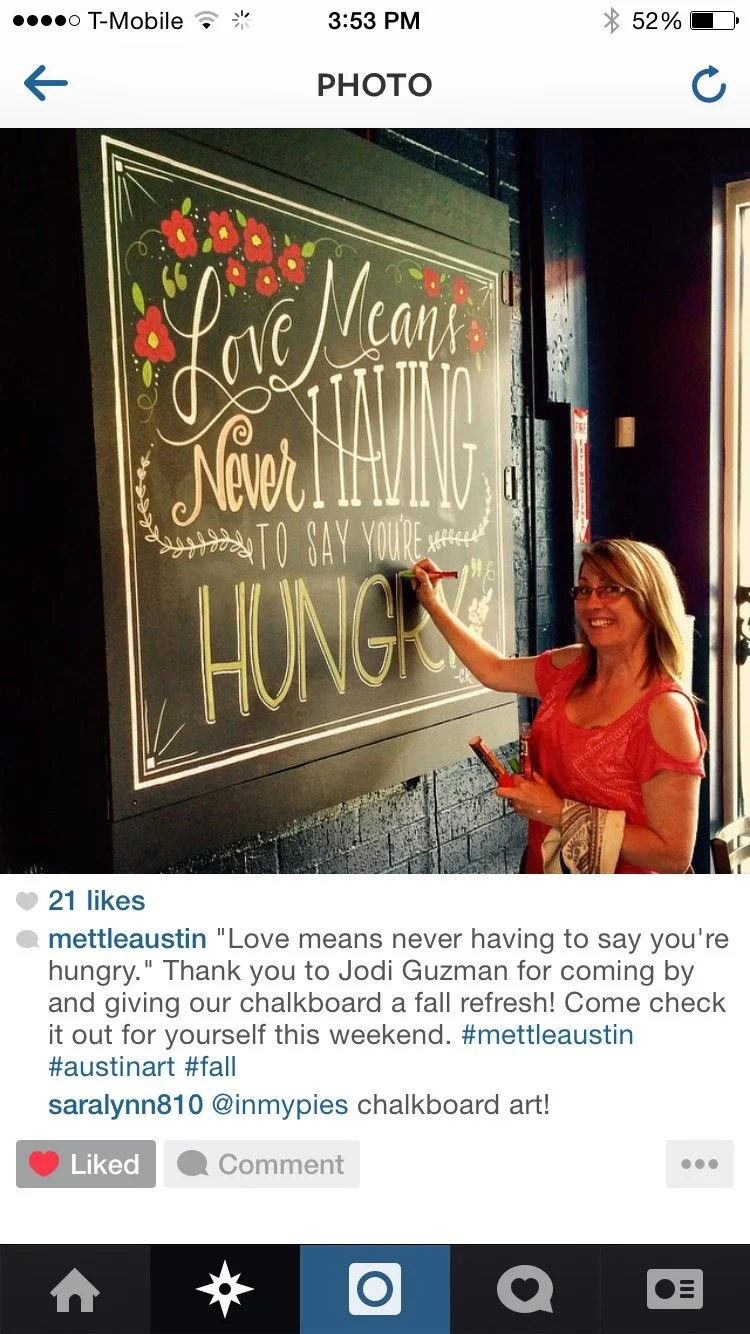 T-Mobile 3:53 PM 52%
PHOTO
“Love Means
Never HAVING
TO SAY YOU'RE
HUNGRY”
-C.K.
FIRE
EXTINGUISHER
21 likes
mettleaustin "Love means never having to say you're
hungry." Thank you to Jodi Guzman for coming by
and giving our chalkboard a fall refresh! Come check
it out for yourself this weekend. #mettleaustin
#austinart #fall
saralynn810 @inmypies chalkboard art!
Liked Comment